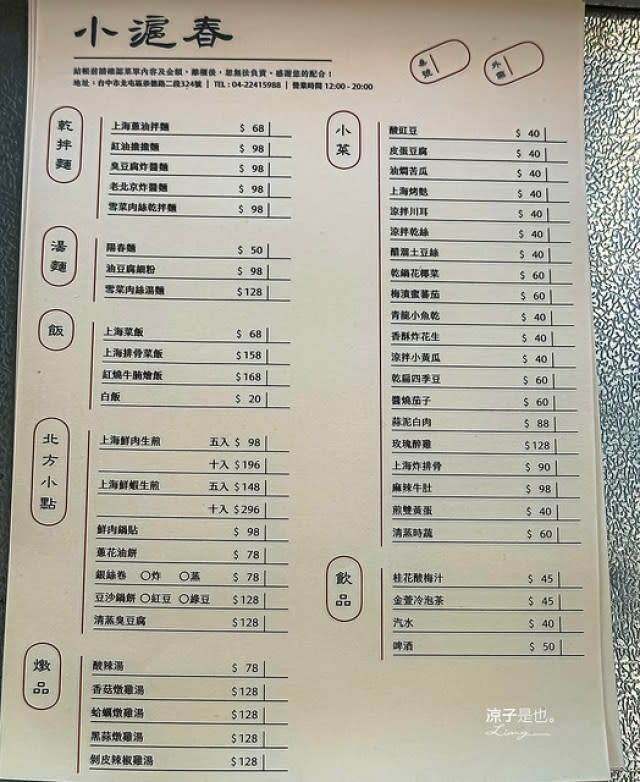 小滬春
桌號
外帶
結帳前請確認菜單內容及金額，離櫃後，恕無法負責。感謝您的配合！
地址：台中市北屯區崇德路二段324號 | TEL : 04-22415988 | 營業時間 12:00 - 20:00
乾拌麵
上海蔥油拌麵 $ 68
紅油擔擔麵 $ 98
臭豆腐炸醬麵 $ 98
老北京炸醬麵 $ 98
雪菜肉絲乾拌麵 $ 98
湯麵
陽春麵 $ 50
油豆腐細粉 $ 98
雪菜肉絲湯麵 $128
飯
上海菜飯 $ 68
上海排骨菜飯 $158
紅燒牛腩燴飯 $168
白飯 $ 20
北方小點
上海鮮肉生煎 五入 $ 98
十入 $196
上海鮮蝦生煎 五入 $148
十入 $296
鮮肉鍋貼 $ 98
蔥花油餅 $ 78
銀絲卷 〇炸 〇蒸 $ 78
豆沙鍋餅 〇紅豆 〇綠豆 $128
清蒸臭豆腐 $128
燉品
酸辣湯 $ 78
香菇燉雞湯 $128
蛤蠣燉雞湯 $128
黑蒜燉雞湯 $128
剝皮辣椒雞湯 $128
小菜
酸豇豆 $ 40
皮蛋豆腐 $ 40
油燜苦瓜 $ 40
上海烤麩 $ 40
涼拌川耳 $ 40
涼拌乾絲 $ 40
醋溜土豆絲 $ 40
乾鍋花椰菜 $ 60
梅漬蜜蕃茄 $ 60
青龍小魚乾 $ 40
香酥炸花生 $ 40
涼拌小黃瓜 $ 40
乾扁四季豆 $ 60
醬燒茄子 $ 60
蒜泥白肉 $ 88
玫瑰醉雞 $128
上海炸排骨 $ 90
麻辣牛肚 $ 98
煎雙黃蛋 $ 40
清蒸時蔬 $ 60
飲品
桂花酸梅汁 $ 45
金萱冷泡茶 $ 45
汽水 $ 40
啤酒 $ 50
涼子是也。
Liang